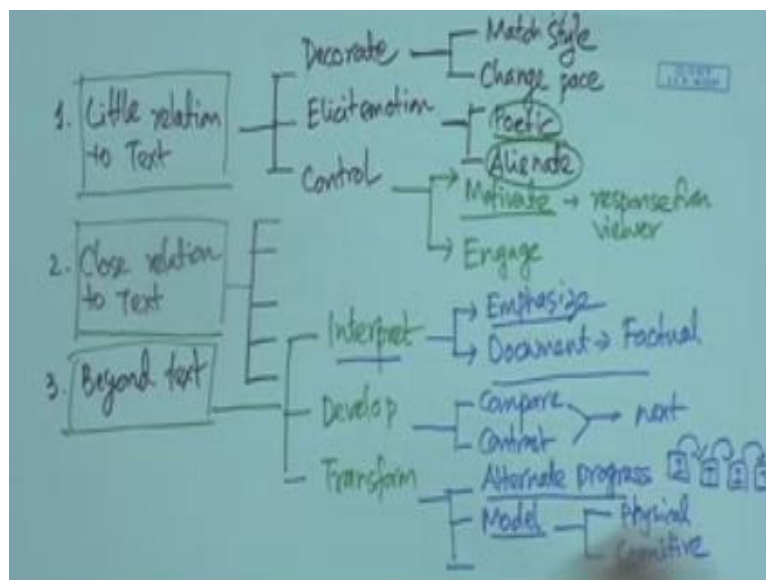 Decorate
Match style
Change pace
1. Little relation
to Text
Elicit emotion
Poetic
Alienate
Control
Motivate → response from
viewer
Engage
2. Close relation
to Text
3. Beyond text
Interpret
Emphasize
Document → Factual
Develop
Compare
Contrast
→ next
Transform
Alternate progress
Model
Physical
Cognitive